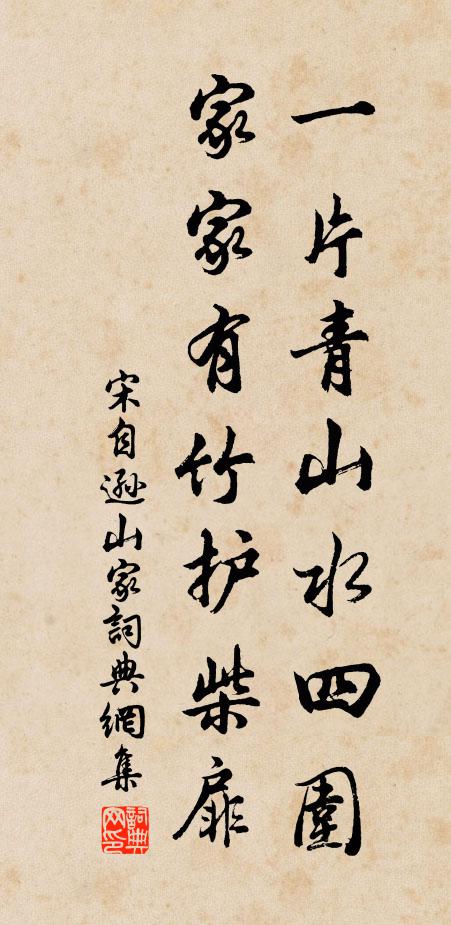 一片青山水四圍
家家有竹护柴扉
宋自遜山家詞典網集
詞典網印